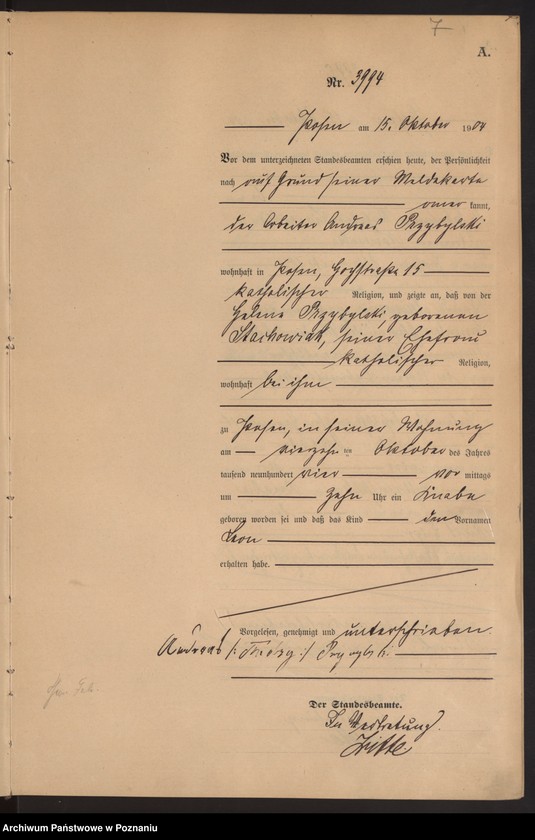 7
A.
Nr. 3994
Posen am 15. Oktober 1904
Vor dem unterzeichneten Standesbeamten erschien heute, der Persönlichkeit
nach auf Grund seiner Meldekarte
aner kannt,
der Arbeiter Andreas Przybylski
wohnhaft in Posen, Hochstraße 15
katholischer Religion, und zeigte an, daß von der
Helene Przybylski, geborenen
Stachowiak, seiner Ehefrau
katholischer Religion,
wohnhaft bei ihm
zu Posen, in seiner Wohnung
am vierzehn ten Oktober des Jahres
tausend neunhundert vier vor mittags
um zehn Uhr ein Knabe
geboren worden sei und daß das Kind den Vornamen
Leon
erhalten habe.
Vorgelesen, genehmigt und unterschrieben.
Andreas
Der Standesbeamte.
In Vertretung.
Archiwum Państwowe w Poznaniu